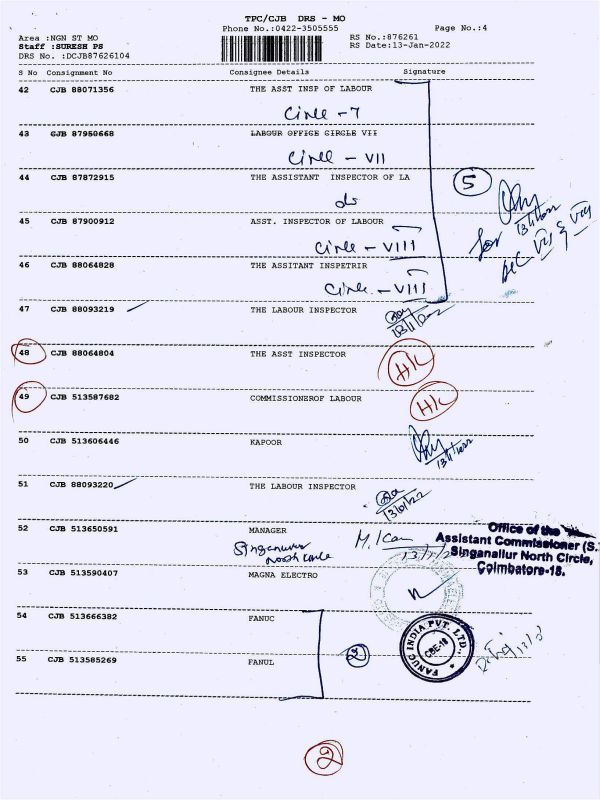 TPC/CJB DRS - MO
Phone No.:0422-3505555 Page No.:4
Area :NGN ST MO RS No.:876261
Staff :SURESH PS RS Date:13-Jan-2022
DRS No. :DCJB87626104
S No Consignment No Consignee Details Signature
42 CJB 88071356 THE ASST INSP OF LABOUR
Circle - 7
43 CJB 87950668 LABOUR OFFICE CIRCLE VII
Circle - VII
44 CJB 87872915 THE ASSISTANT INSPECTOR OF LA
do
5
13/1/2022
for
45 CJB 87900912 ASST. INSPECTOR OF LABOUR
Circle - VIII
VII & VIII
46 CJB 88064828 THE ASSITANT INSPETRIR
Circle - VIII
47 CJB 88093219 THE LABOUR INSPECTOR
13/1/2022
48 CJB 88064804 THE ASST INSPECTOR
H/L
49 CJB 513587682 COMMISSIONEROF LABOUR
H/L
50 CJB 513606446 KAPOOR
13/1/2022
51 CJB 88093220 THE LABOUR INSPECTOR
52 CJB 513650591 MANAGER
Singanallur
North Circle
Office of the
Assistant Commissioner (S.
Singanallur North Circle,
Coimbatore-18.
53 CJB 513590407 MAGNA ELECTRO
54 CJB 513666382 FANUC
FANUC INDIA PVT. LTD.
CBE-18
2
55 CJB 513585269 FANUL
2